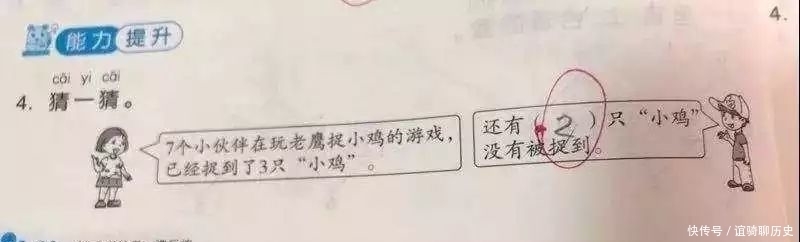 4.
能力提升
cāi yi cāi
4. 猜一猜。
7个小伙伴在玩老鹰捉小鸡的游戏，
已经捉到了3只“小鸡”。
还有（2）只“小鸡”
没有被捉到。
快传号／谊骑聊历史